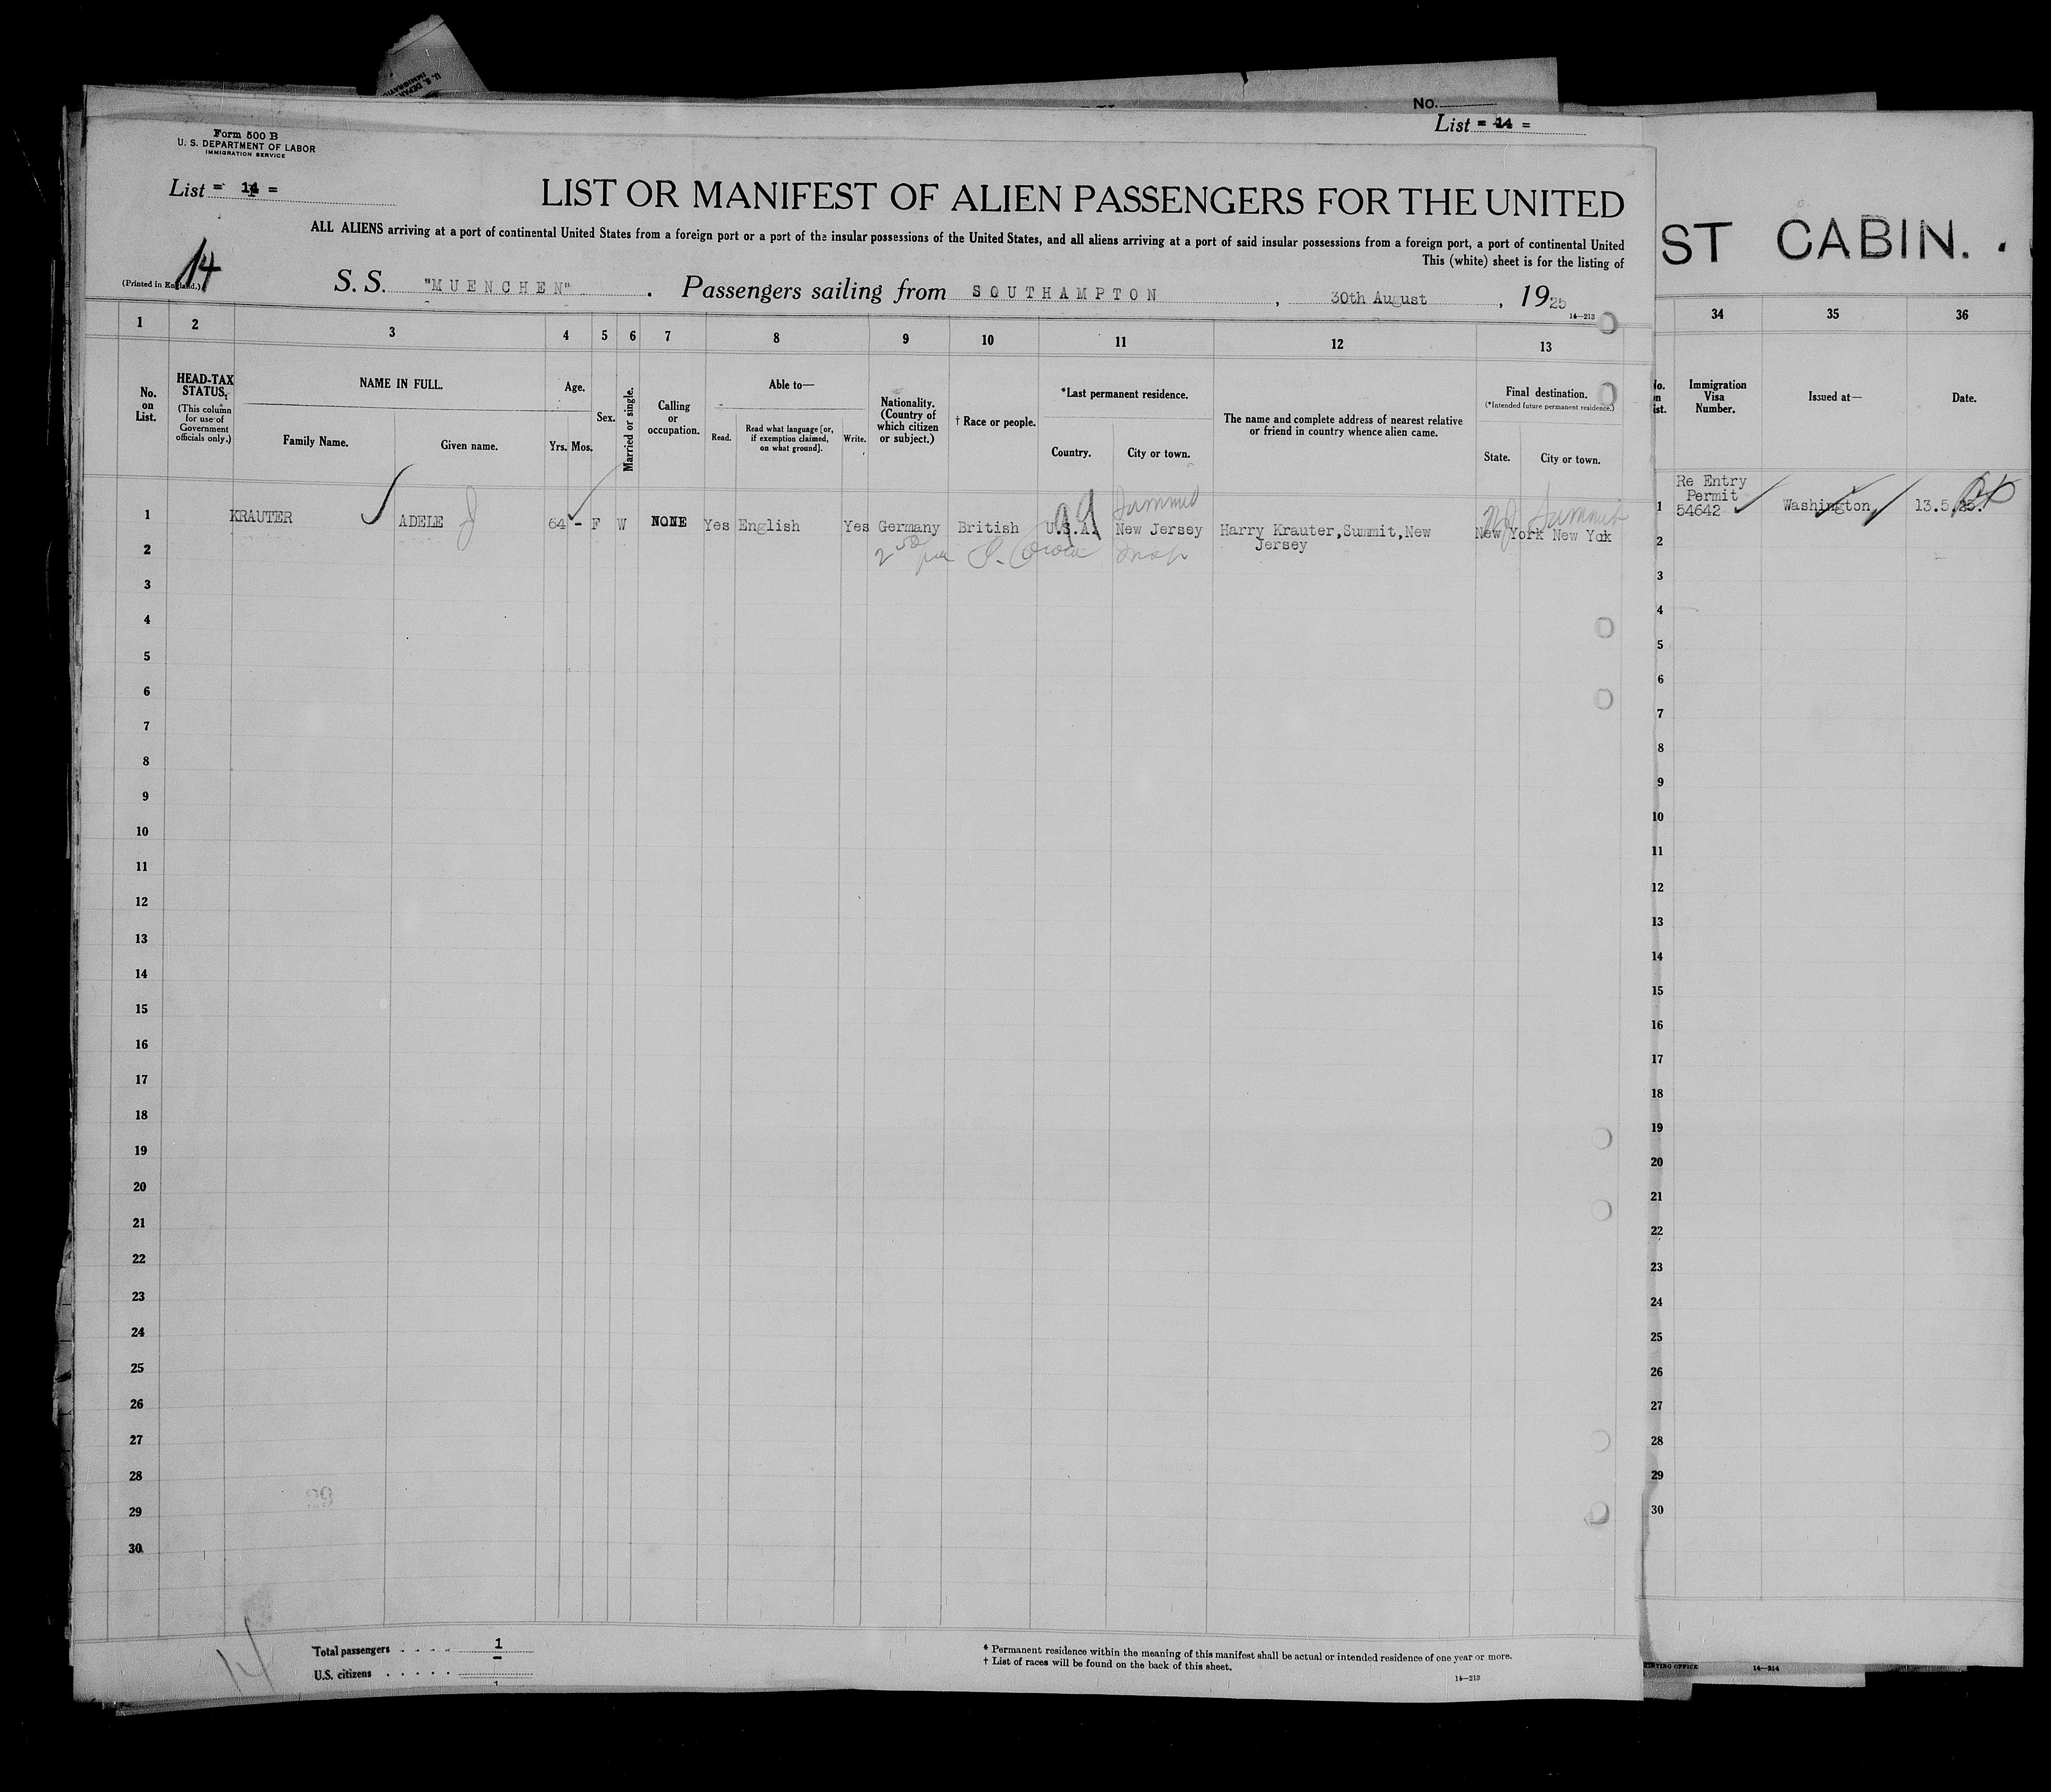 No.
List = 14 =
Form 500 B
U. S. DEPARTMENT OF LABOR
IMMIGRATION SERVICE
List = 14 =
LIST OR MANIFEST OF ALIEN PASSENGERS FOR THE UNITED
ALL ALIENS arriving at a port of continental United States from a foreign port or a port of the insular possessions of the United States, and all aliens arriving at a port of said insular possessions from a foreign port, a port of continental United
This (white) sheet is for the listing of
14
(Printed in England.)
S. S. "MUENCHEN". Passengers sailing from SOUTHAMPTON, 30th August, 1925
14—213
ST CABIN.
1 2 3 4 5 6 7 8 9 10 11 12 13
34 35 36
No. on List.
HEAD-TAX STATUS.
(This column for use of Government officials only.)
NAME IN FULL.
Family Name.
Given name.
Age.
Yrs. Mos.
Sex.
Married or single.
Calling or occupation.
Able to—
Read.
Read what language [or, if exemption claimed, on what ground].
Write.
Nationality. (Country of which citizen or subject.)
† Race or people.
*Last permanent residence.
Country.
City or town.
The name and complete address of nearest relative or friend in country whence alien came.
Final destination.
(*Intended future permanent residence.)
State.
City or town.
Immigration Visa Number.
Issued at—
Date.
Summit
N J Summit
1 KRAUTER ADELE J 64 - F W NONE Yes English Yes Germany British U.S.A. New Jersey Harry Krauter, Summit, New Jersey New York New Yok
1 Re Entry Permit 54642 Washington 13.5.25.
2
3
4
5
6
7
8
9
10
11
12
13
14
15
16
17
18
19
20
21
22
23
24
25
26
27
28
29
30
2
3
4
5
6
7
8
9
10
11
12
13
14
15
16
17
18
19
20
21
22
23
24
25
26
27
28
29
30
14
Total passengers . . . . 1
U.S. citizens . . . . .
* Permanent residence within the meaning of this manifest shall be actual or intended residence of one year or more.
† List of races will be found on the back of this sheet.
14—213
14—214